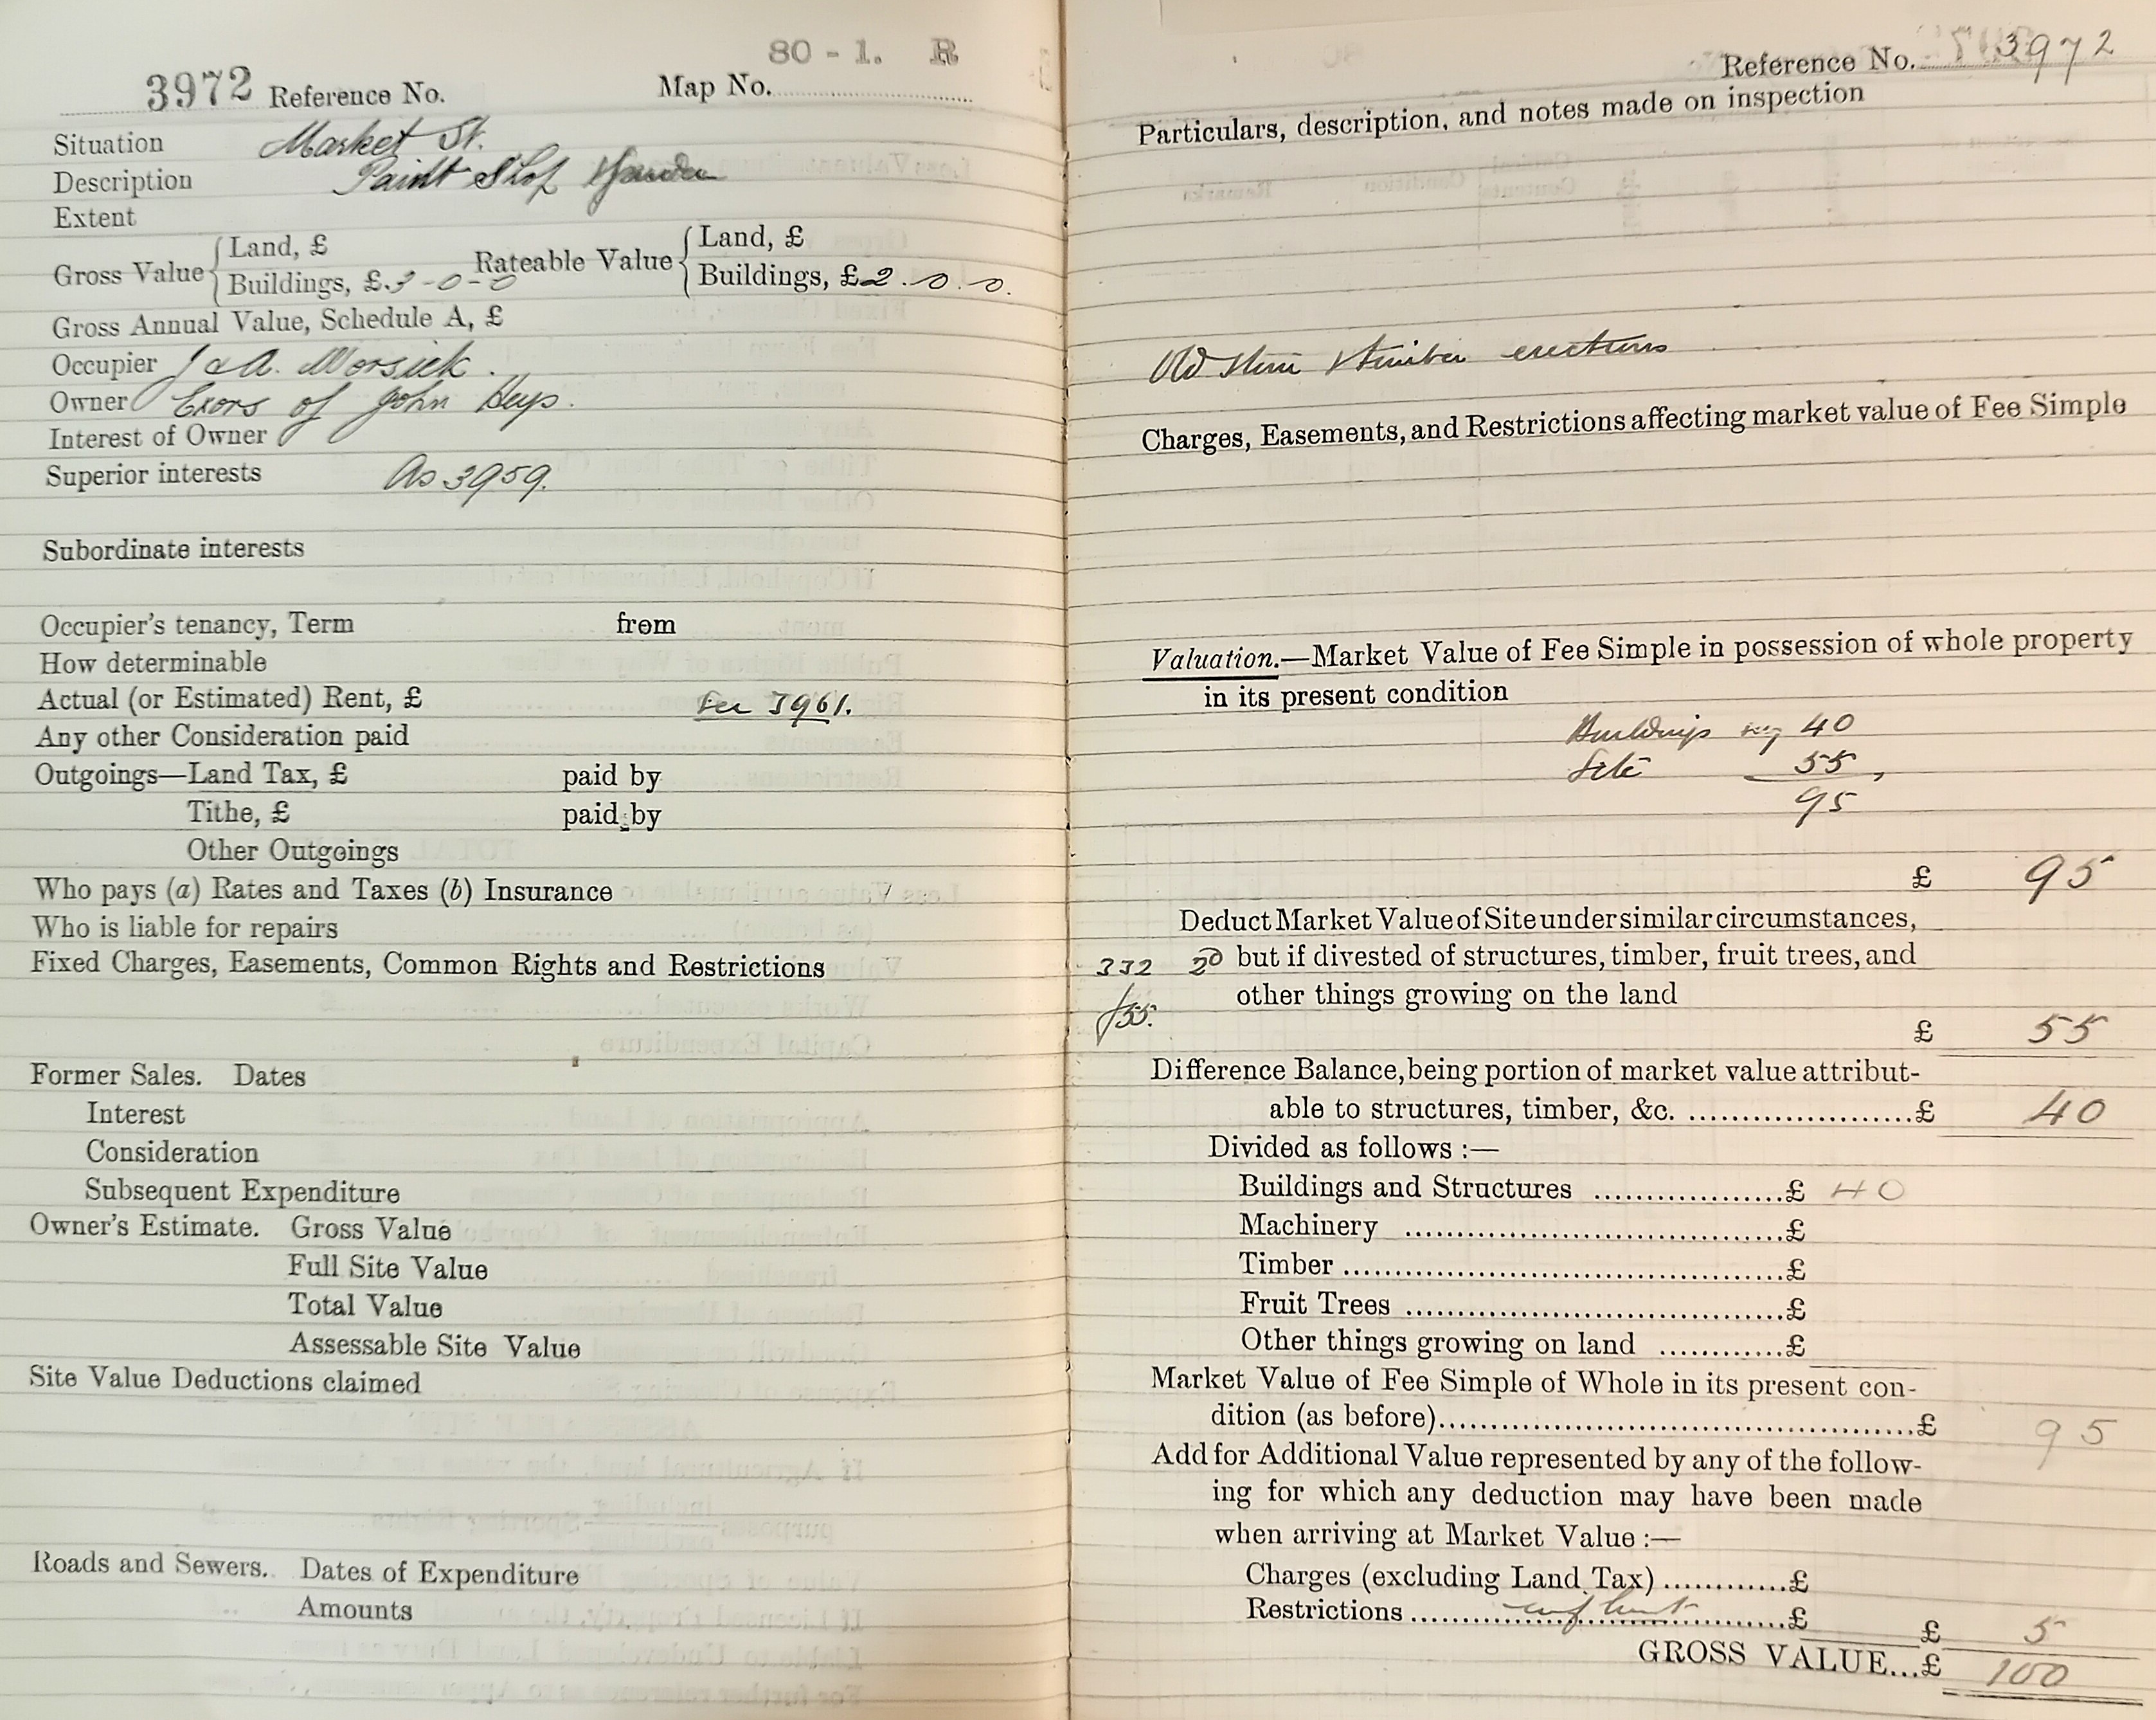 80 - 1. R
3972 Reference No. Map No.
Situation Market St.
Description Paint Shop Garden
Extent
Gross Value { Land, £
Buildings, £ 3 - 0 - 0
Rateable Value { Land, £
Buildings, £ 2 . 0 . 0.
Gross Annual Value, Schedule A, £
Occupier J & A. Worsick.
Owner Exors of John Heys.
Interest of Owner
Superior interests As 3959.
Subordinate interests
Occupier's tenancy, Term from
How determinable
Actual (or Estimated) Rent, £ See 3961.
Any other Consideration paid
Outgoings—Land Tax, £ paid by
Tithe, £ paid by
Other Outgoings
Who pays (a) Rates and Taxes (b) Insurance
Who is liable for repairs
Fixed Charges, Easements, Common Rights and Restrictions
Former Sales. Dates
Interest
Consideration
Subsequent Expenditure
Owner's Estimate. Gross Value
Full Site Value
Total Value
Assessable Site Value
Site Value Deductions claimed
Roads and Sewers. Dates of Expenditure
Amounts
Reference No. 3972
Particulars, description, and notes made on inspection
Old stone & timber erections
Charges, Easements, and Restrictions affecting market value of Fee Simple
Valuation.—Market Value of Fee Simple in possession of whole property
in its present condition
Buildings say 40
Site 55
95
£ 95
Deduct Market Value of Site under similar circumstances,
but if divested of structures, timber, fruit trees, and
other things growing on the land
332 20
£55.
£ 55
Difference Balance, being portion of market value attribut-
able to structures, timber, &c. ....................£ 40
Divided as follows :—
Buildings and Structures ..................£ 40
Machinery ....................................£
Timber ..........................................£
Fruit Trees ....................................£
Other things growing on land ............£
Market Value of Fee Simple of Whole in its present con-
dition (as before).............................................£ 95
Add for Additional Value represented by any of the follow-
ing for which any deduction may have been made
when arriving at Market Value :—
Charges (excluding Land Tax) ............£
Restrictions ....................................£
£ 5
GROSS VALUE...£ 100